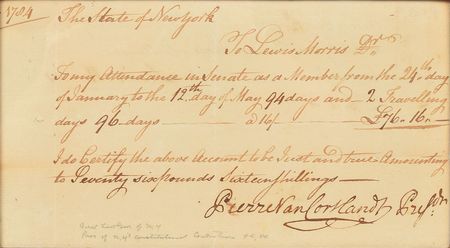 1784
The State of New York
To Lewis Morris Dr.
To my Attendance in Senate as a Member from the 24th day
of January to the 12th day of May 94 days and 2 Travelling
days 96 days @ 16/ £76.16.
I do Certify the above Account to be Just and true Amounting
to Seventy six pounds Sixteen shillings
Pierre Van Cortlandt Presdt.
of N.Y
of N.Y Constitutional